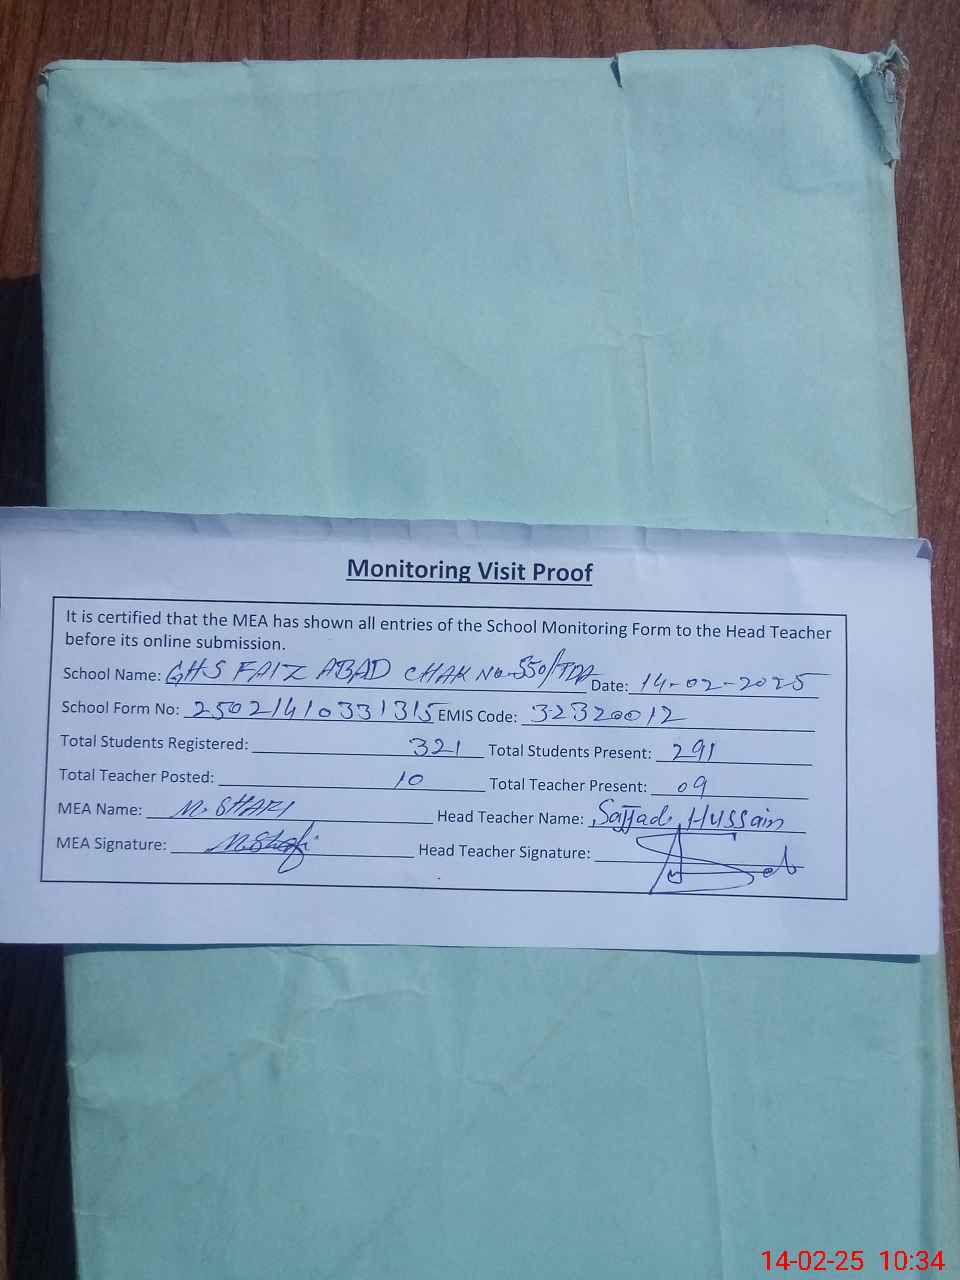 Monitoring Visit Proof
It is certified that the MEA has shown all entries of the School Monitoring Form to the Head Teacher
before its online submission.
School Name: GHS FAIZ ABAD CHAK No. 550/TDA Date: 14-02-2025
School Form No: 25021410331315 EMIS Code: 32320012
Total Students Registered: 321 Total Students Present: 291
Total Teacher Posted: 10 Total Teacher Present: 09
MEA Name: M. SHAFI Head Teacher Name: Sajjad Hussain
MEA Signature: M.Shafi Head Teacher Signature:
14-02-25 10:34